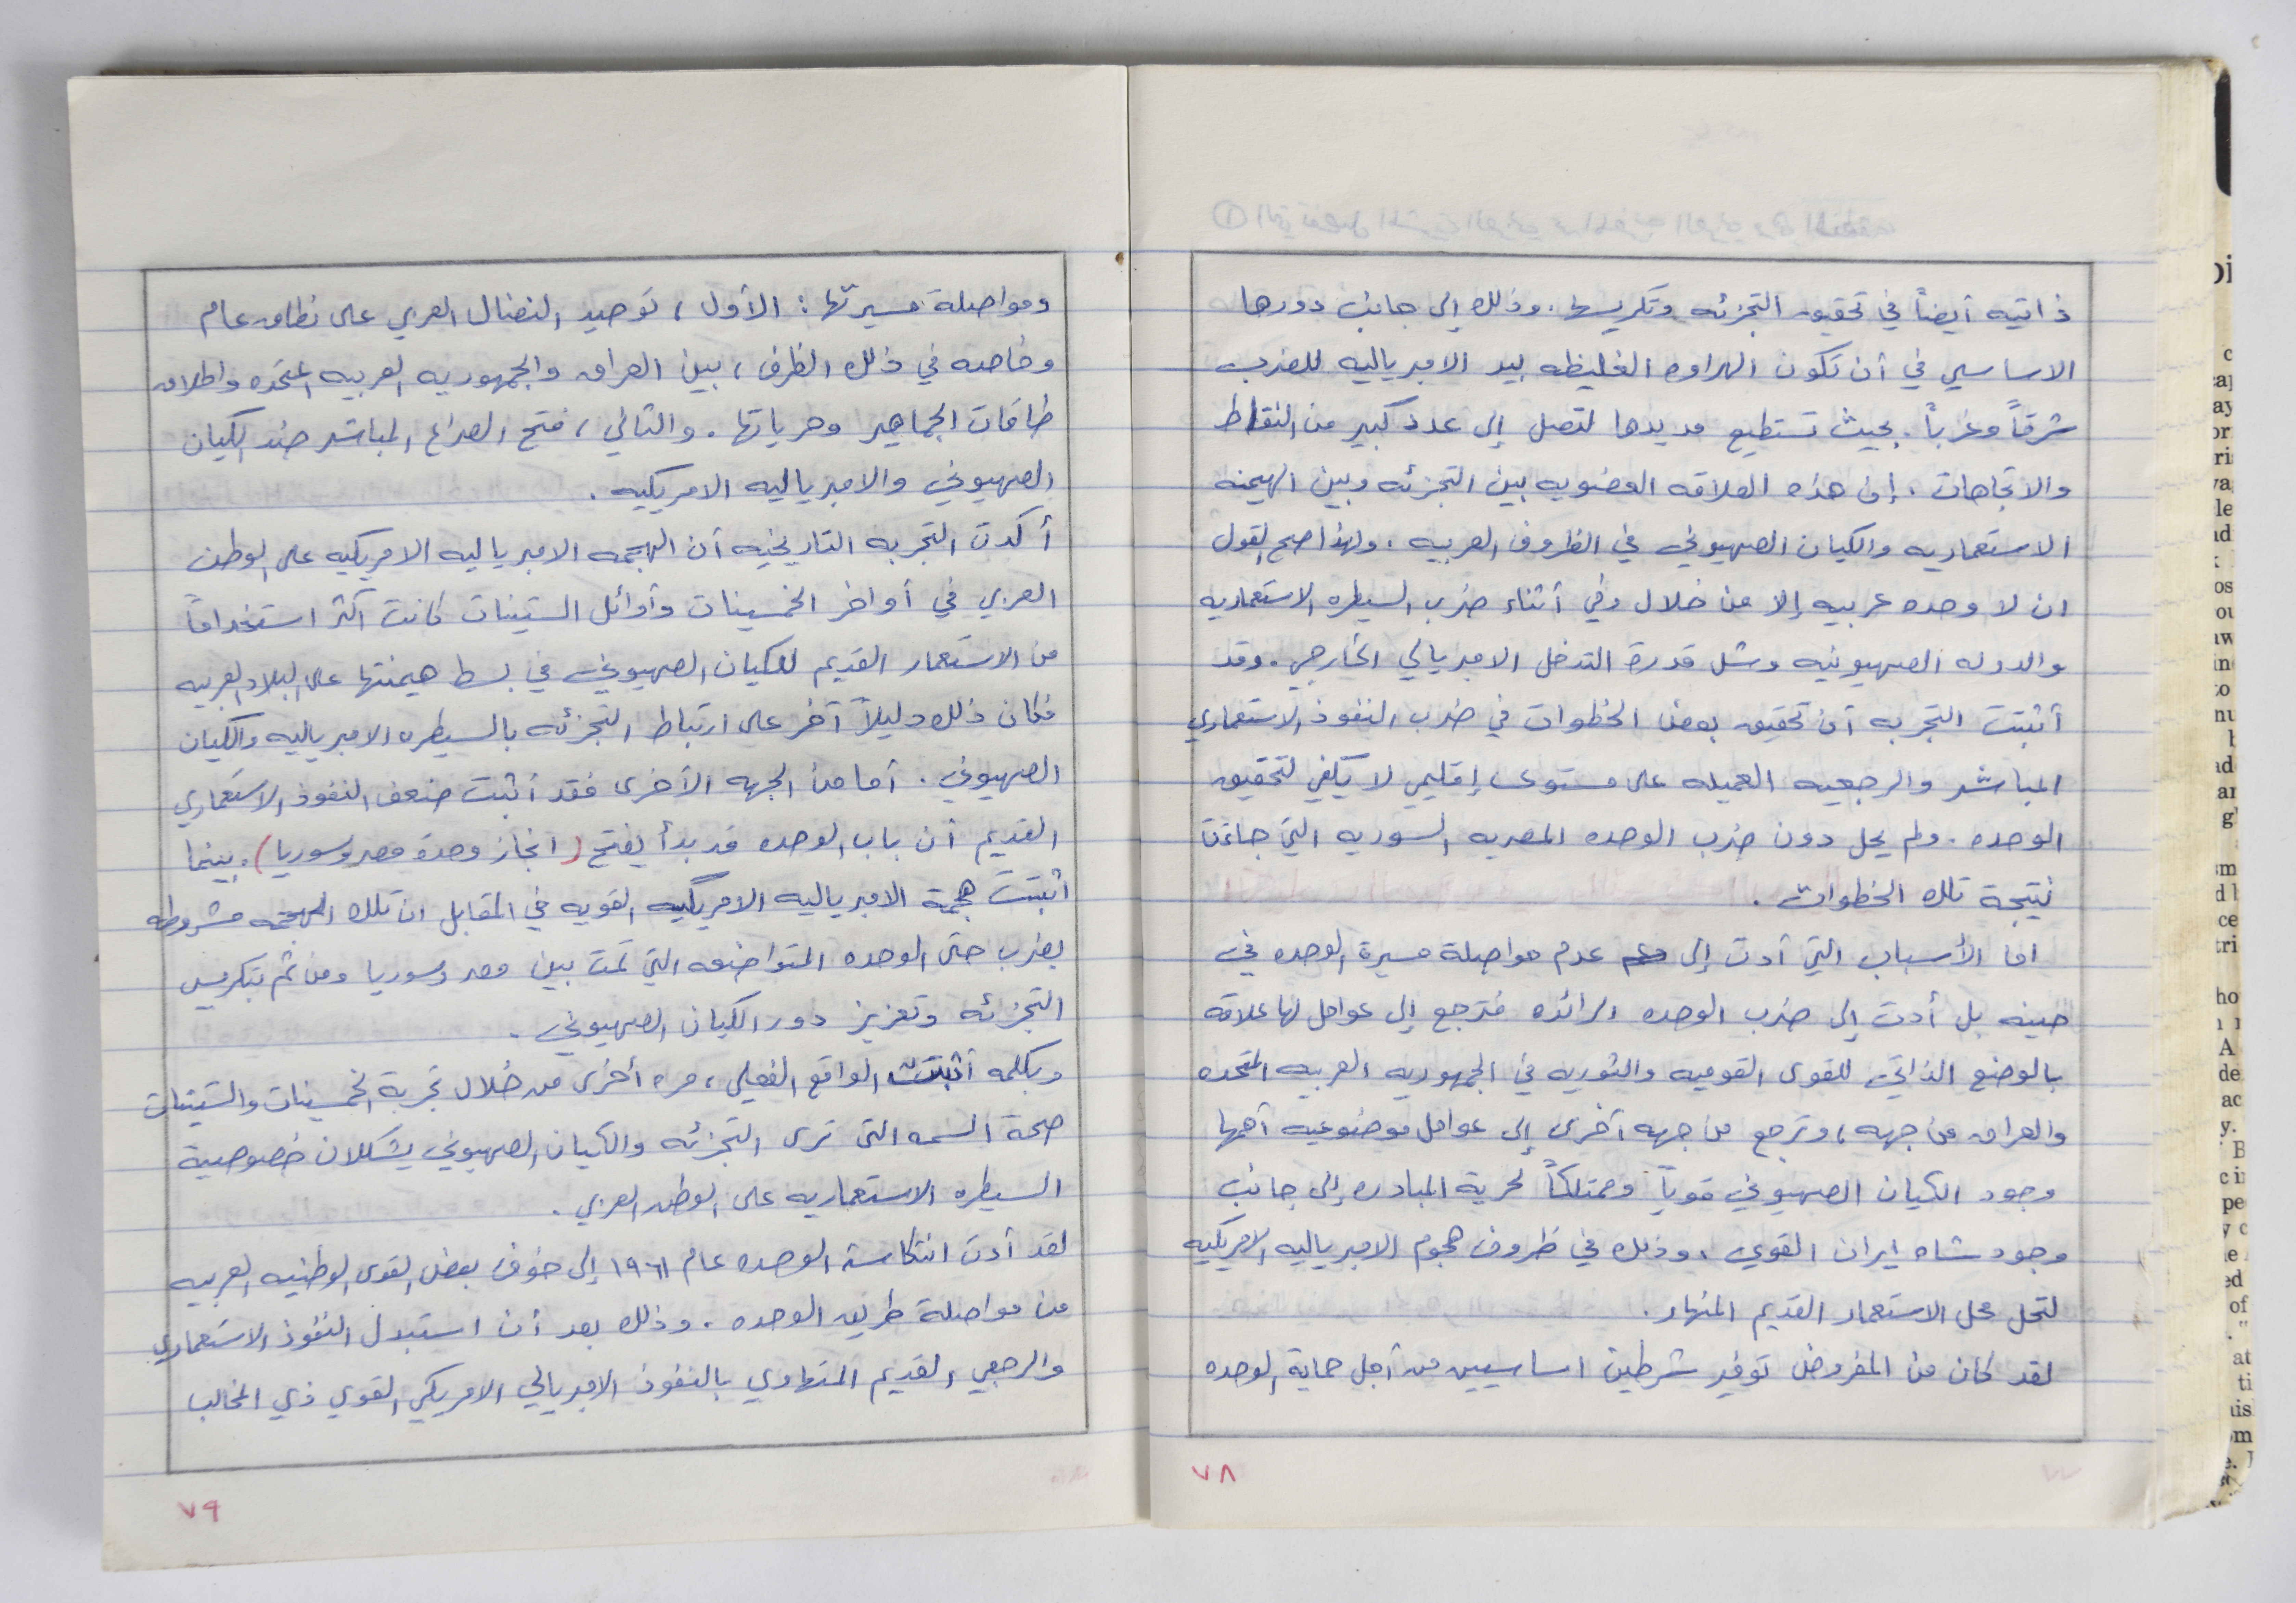 ذاتيه أيضاً في تحقيق التجزئه وتكريسها. وذلك إلى جانب دورها
الاساسي في أن تكون الهراوه الغليظه بيد الامبرياليه للضرب
شرقاً وغرباً. بحيث تستطيع مد يدها لتصل إلى عدد كبير من النقاط
والاتجاهات. إن هذه العلاقه العضويه بين التجزئه وبين الهيمنه
الاستعماريه والكيان الصهيوني في الظروف العربيه. ولهذا صح القول
ان لا وحده عربيه إلا من خلال وفي أثناء ضرب السيطره الاستعماريه
والدوله الصهيونيه وشل قدرة التدخل الامبريالي الخارجي. وقد
أثبتت التجربه أن تحقيق بعض الخطوات في ضرب النفوذ الاستعماري
المباشر والرجعيه العميله على مستوى إقليمي لا يكفي لتحقيق
الوحده. ولم يحل دون ضرب الوحده المصريه السوريه التي جاءت
نتيجة تلك الخطوات.
اما الأسباب التي أدت إلى عدم مواصلة مسيرة الوحده في
حينه بل أدت إلى ضرب الوحده الرائده فترجع إلى عوامل لها علاقه
بالوضع الذاتي للقوى القوميه والثوريه في الجمهوريه العربيه المتحده
والعراق من جهه، وترجع من جهه أخرى إلى عوامل موضوعيه أهمها
وجود الكيان الصهيوني قوياً وممتلكاً لحرية المبادره إلى جانب
وجود شاه ايران القوي، وذلك في ظروف هجوم الامبرياليه الامريكيه
لتحل محل الاستعمار القديم المنهار.
لقد كان من المفروض توفير شرطين اساسيين من أجل حماية الوحده
٧٨
ومواصلة مسيرتها: الأول، توحيد النضال العربي على نطاق عام
وخاصه في ذلك الظرف، بين العراق والجمهوريه العربيه المتحده واطلاق
طاقات الجماهير وحرياتها. والثاني، فتح الصراع المباشر ضد الكيان
الصهيوني والامبرياليه الامريكيه.
أكدت التجربه التاريخيه أن الهجمه الامبرياليه الامريكيه على الوطن
العربي في أواخر الخمسينات وأوائل الستينات كانت أكثر استخداماً
من الاستعمار القديم للكيان الصهيوني في بسط هيمنتها على البلاد العربيه
فكان ذلك دليلاً آخر على ارتباط التجزئه بالسيطره الامبرياليه والكيان
الصهيوني. أما من الجهه الأخرى فقد أثبت ضعف النفوذ الاستعماري
القديم أن باب الوحده قد بدأ يفتح (انجاز وحدة مصر وسوريا). بينما
اثبتت هجمة الامبرياليه الامريكيه القويه في المقابل ان تلك الهجمه مشروطه
بضرب حتى الوحده المتواضعه التي تمت بين مصر وسوريا ومن ثم بتكريس
التجزئه وتعزيز دور الكيان الصهيوني.
وبكلمه أثبت الواقع الفعلي، مره أخرى من خلال تجربة الخمسينات والستينات
صحة السمه التي ترى التجزئه والكيان الصهيوني يشكلان خصوصية
السيطره الاستعماريه على الوطن العربي.
لقد أدت انتكاسة الوحده عام ١٩٦١ إلى خوف بعض القوى الوطنيه العربيه
من مواصلة طريق الوحده. وذلك بعد أن استبدل النفوذ الاستعماري
والرجعي القديم المتهاوي بالنفوذ الامبريالي الامريكي القوي ذي المخالب
٧٩